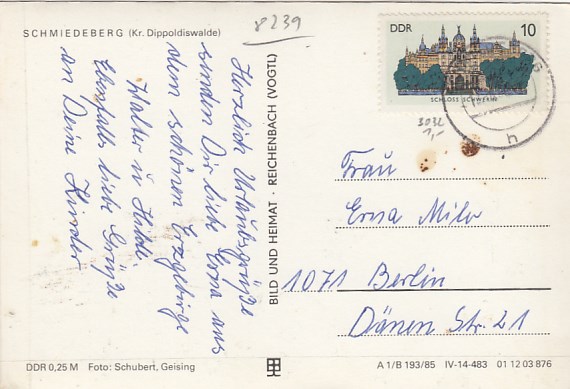 SCHMIEDEBERG (Kr. Dippoldiswalde)
8239
DDR 10
SCHLOSS SCHWERIN
h
3032
1,-
Herzliche Urlaubsgrüße
senden Dir liebe Erna aus
dem schönen Erzgebirge
Walter u. Hilde
Ebenfalls liebe Grüße
an Deine Kinder
BILD UND HEIMAT · REICHENBACH (VOGTL)
Frau
Erna Milo
1071 Berlin
Dänen Str. 21
DDR 0,25 M Foto: Schubert, Geising
A 1/B 193/85 IV-14-483 01 12 03 876